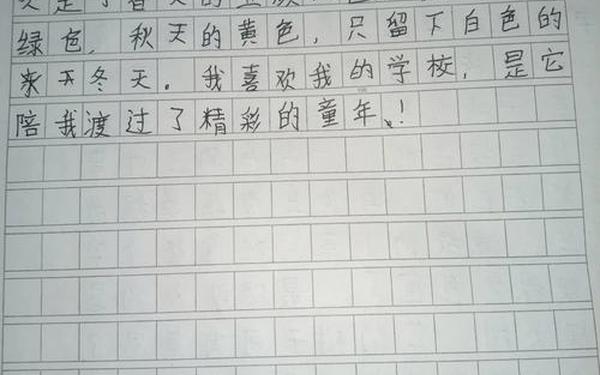 春天的
绿色，秋天的黄色，只留下白色的
来天冬天。我喜欢我的学校，是它
陪我渡过了精彩的童年！